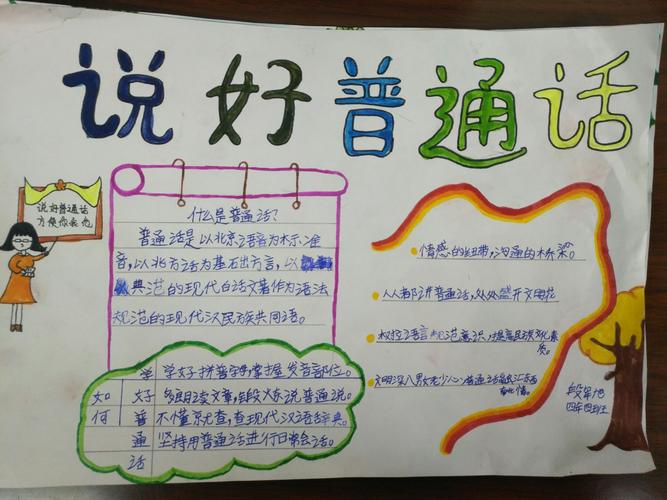 说好普通话
说好普通话
方便你我他
什么是普通话?
普通话是以北京语音为标准
音,以北方话为基石出方言,以
典范的现代白话文著作为语法
规范的现代汉民族共同语。
如何
学好普通话
学好拼音字母,掌握发音部位。
多朗读文章,锻炼说普通说。
不懂就查,查现代汉语辞典。
坚持用普通话进行日常会话。
情感的纽带,沟通的桥梁。
人人都讲普通话,处处盛开文明花
树立语言规范意识,提高民族文化素
质。
文明深入男女老少心,普通话
南北情。
四年四班